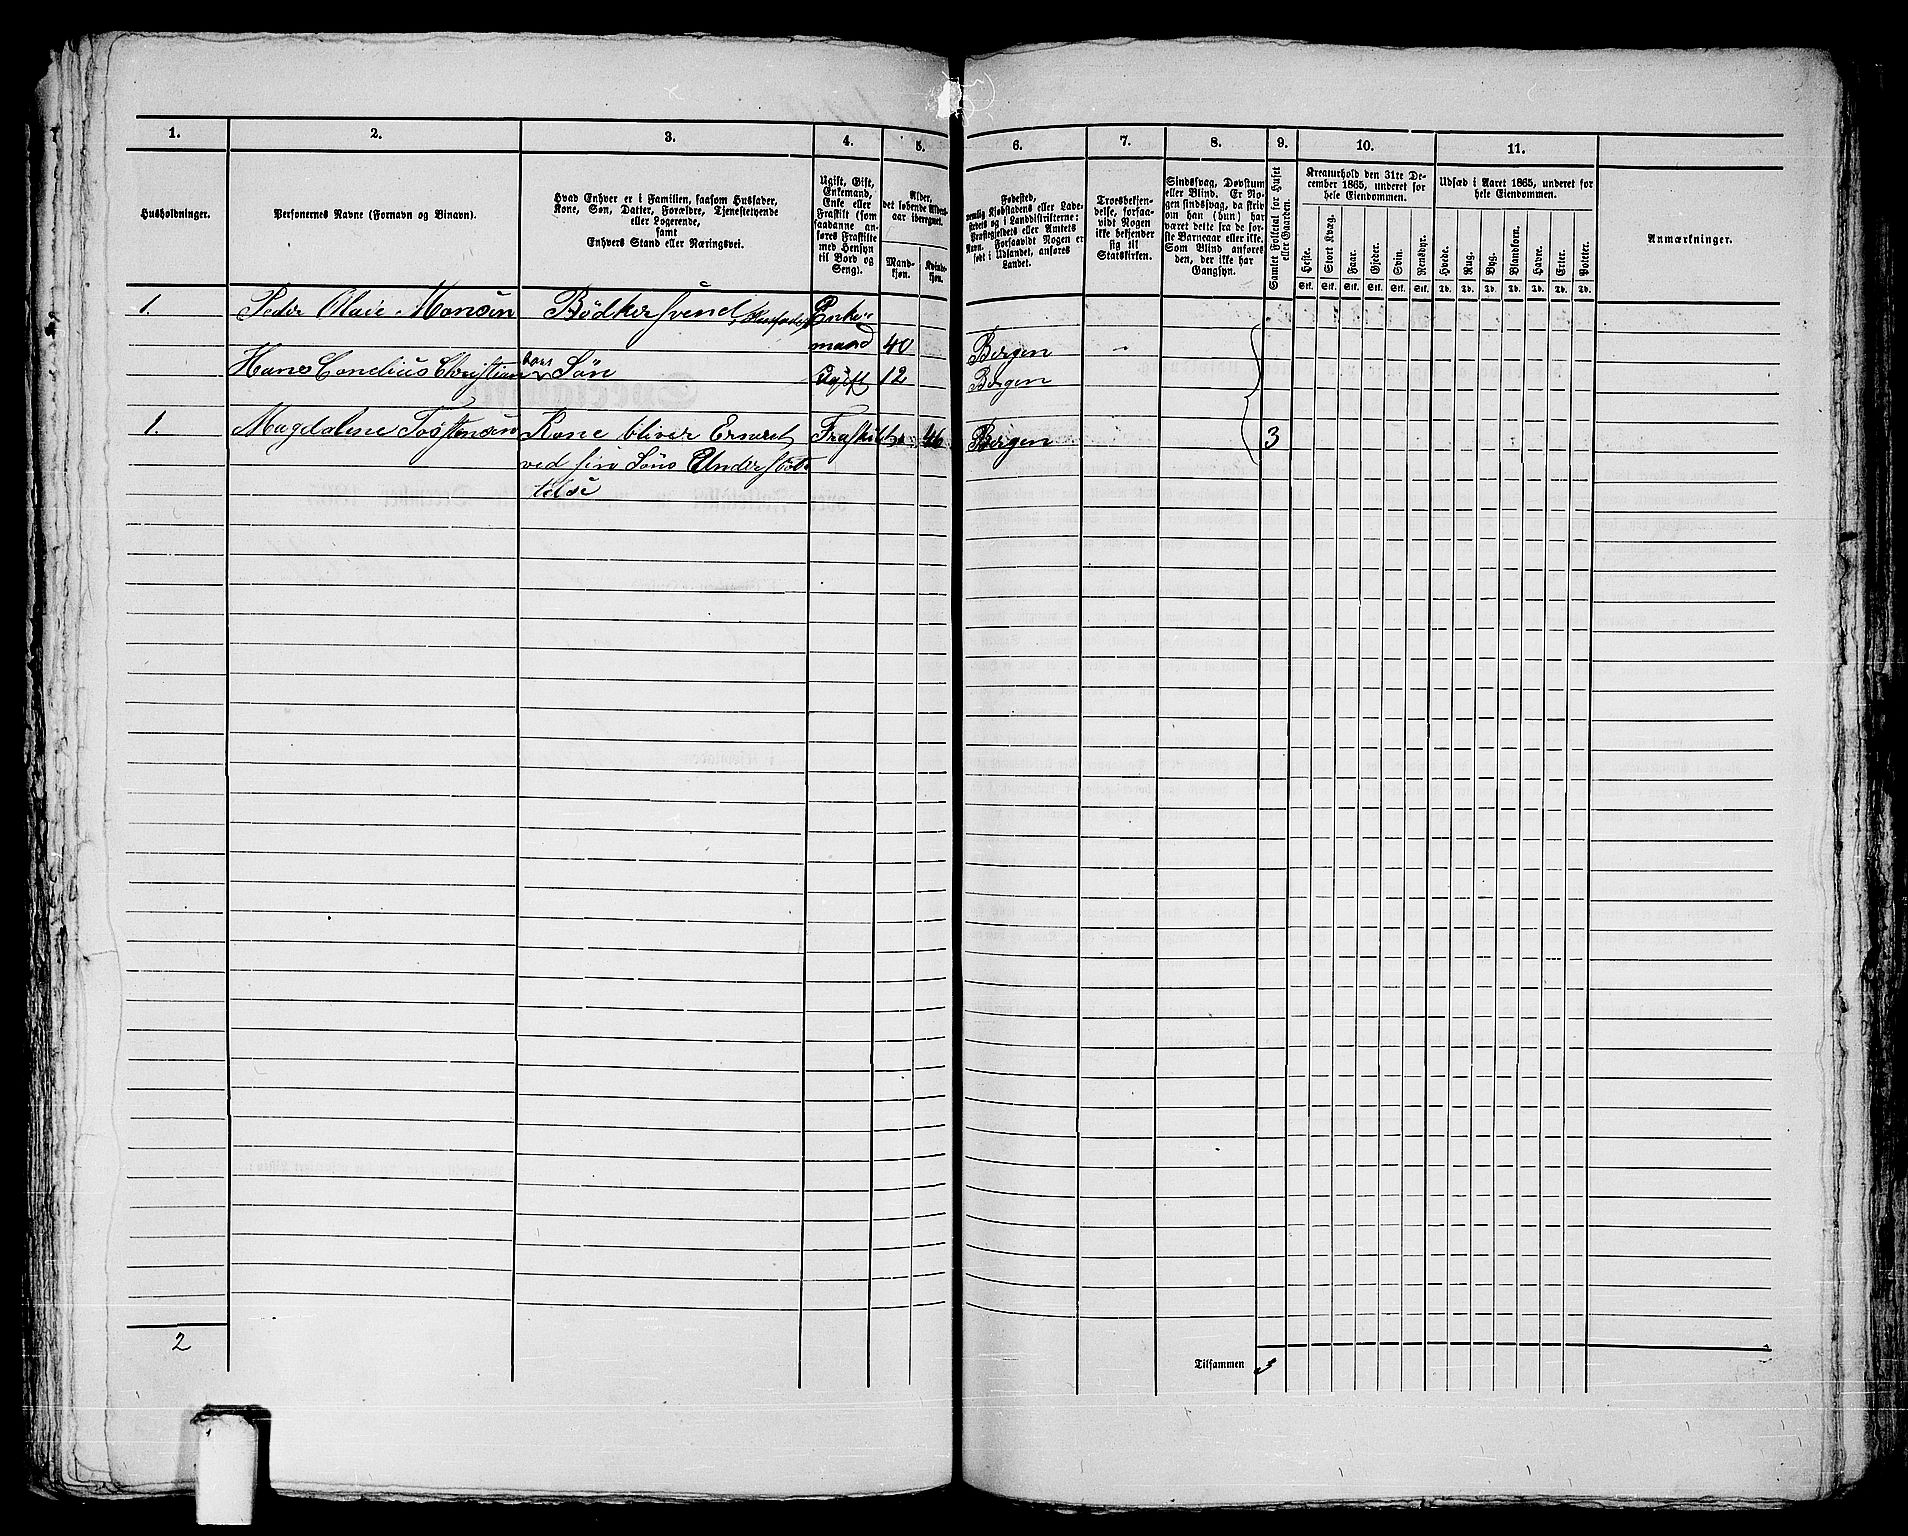 1. 2. 3. 4. 5. 6. 7. 8. 9. 10. 11.
Husholdninger.
Personernes Navne (Fornavn og Binavn).
Hvad Enhver er i Familien, saasom Husfader,
Kone, Søn, Datter, Forældre, Tjenestetyende
eller Logerende,
samt
Enhvers Stand eller Næringsvei.
Ugift, Gift,
Enkemand,
Enke eller
Fraskilt (som
saadanne an-
føres Fraskilte
med Hensyn
til Bord og
Seng).
Alder,
det løbende Alders-
aar iberegnet.
Mand-
kjøn.
Kvinde-
kjøn.
Fødested,
nemlig Kjøbstadens eller Lade-
stedets og i Landdistrikterne:
Præstegjældets eller Amtets
Navn. Forsaavidt Nogen er
født i Udlandet, anføres
Landet.
Troesbekjen-
delse, forsaa-
vidt Nogen
ikke bekjender
sig til
Statskirken.
Sindssvag, Døvstum
eller Blind. Er No-
gen sindssvag, da skriv
om han (hun) har
været dette fra de før-
ste Barneaar eller ikke.
Som Blind anføres
den, der ikke har
Gangsyn.
Samlet Folketal for Huset
eller Gaarden.
Kreaturhold den 31te De-
cember 1865, underet for
hele Eiendommen.
Heste. Stort Kvæg. Faar. Gjeder. Svin. Rensdyr.
Stk. Stk. Stk. Stk. Stk. Stk.
Udsæd i Aaret 1865, underet for
hele Eiendommen.
Hvede. Rug. Byg. Blandkorn. Havre. Erter. Poteter.
Td. Td. Td. Td. Td. Td. Td.
Anmærkninger.
1. Peder Olaie Monsen Bödker svend, Husfader Enke
mand 40 Bergen
Hans Cordius Christian hans Søn Ugift 12 Bergen
1. Magdalene Tostensen Kone bliver Ernæret Fraskilt 46 Bergen 3
ved sin Söns Understöt-
telse
2
Tilsammen 3